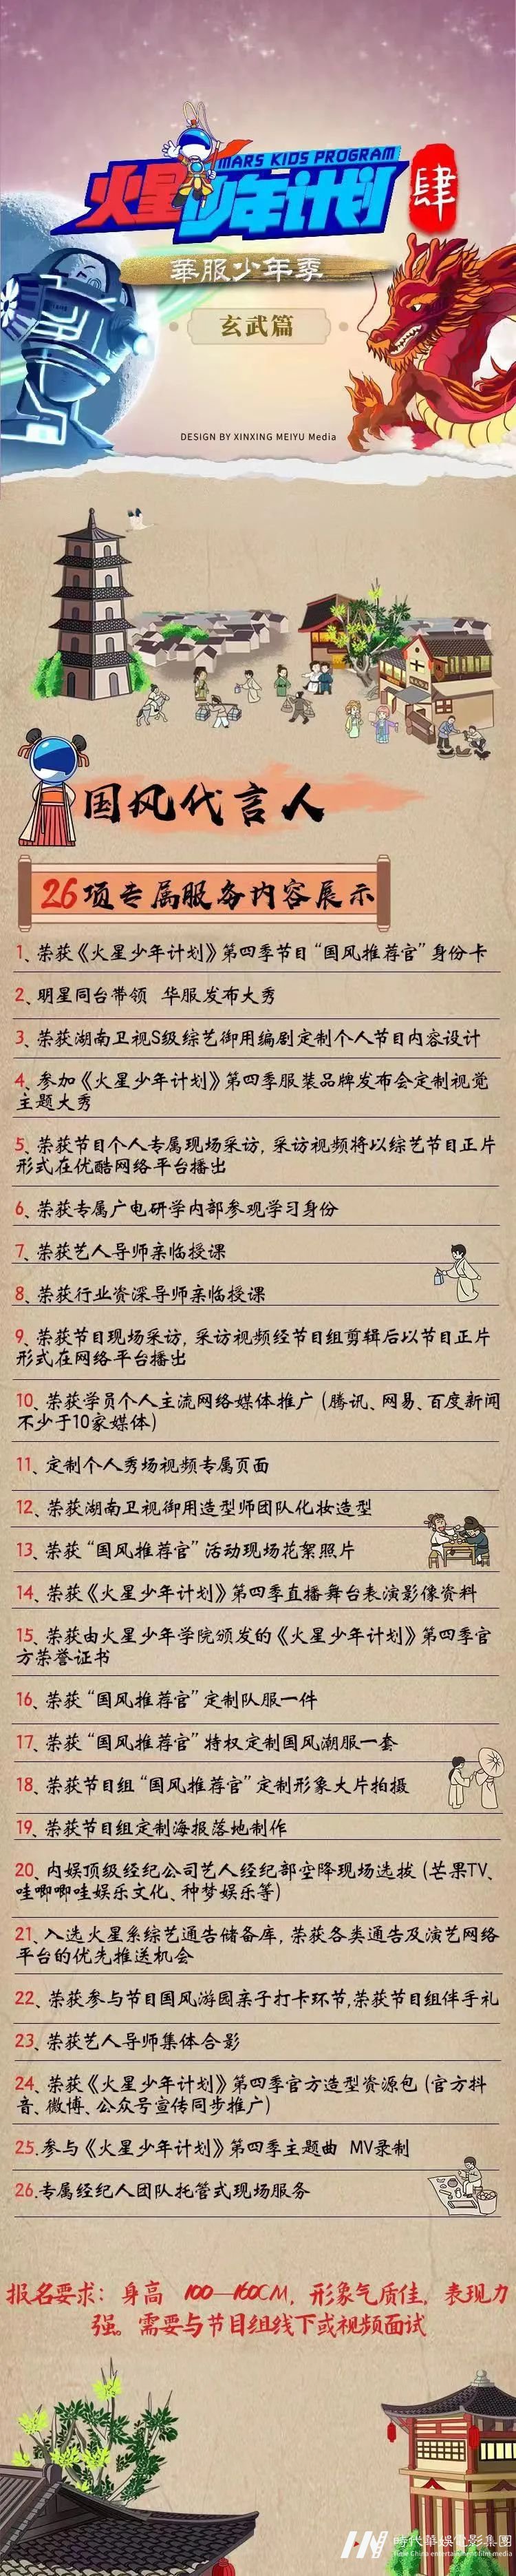 MARS KIDS PROGRAM
火星少年计划
肆
華服少年季
玄武篇
DESIGN BY XINXING MEIYU Media
国风代言人
26项专属服务内容展示
1、荣获《火星少年计划》第四季节目“国风推荐官”身份卡
2、明星同台带领 华服发布大秀
3、荣获湖南卫视S级综艺御用编剧定制个人节目内容设计
4、参加《火星少年计划》第四季服装品牌发布会定制视觉
主题大秀
5、荣获节目个人专属现场采访，采访视频将以综艺节目正片
形式在优酷网络平台播出
6、荣获专属广电研学内部参观学习身份
7、荣获艺人导师亲临授课
8、荣获行业资深导师亲临授课
9、荣获节目现场采访，采访视频经节目组剪辑后以节目正片
形式在网络平台播出
10、荣获学员个人主流网络媒体推广（腾讯、网易、百度新闻
不少于10家媒体）
11、定制个人秀场视频专属页面
12、荣获湖南卫视御用造型师团队化妆造型
13、荣获“国风推荐官”活动现场花絮照片
14、荣获《火星少年计划》第四季直播舞台表演影像资料
15、荣获由火星少年学院颁发的《火星少年计划》第四季官
方荣誉证书
16、荣获“国风推荐官”定制队服一件
17、荣获“国风推荐官”特权定制国风潮服一套
18、荣获节目组“国风推荐官”定制形象大片拍摄
19、荣获节目组定制海报落地制作
20、内娱顶级经纪公司艺人经纪部空降现场选拔（芒果TV、
哇唧唧哇娱乐文化、种梦娱乐等）
21、入选火星系综艺通告储备库，荣获各类通告及演艺网络
平台的优先推送机会
22、荣获参与节目国风游园亲子打卡环节,荣获节目组伴手礼
23、荣获艺人导师集体合影
24、荣获《火星少年计划》第四季官方造型资源包（官方抖
音、微博、公众号宣传同步推广）
25.参与《火星少年计划》第四季主题曲 MV录制
26.专属经纪人团队托管式现场服务
报名要求：身高 100—160CM，形象气质佳，表现力
强。需要与节目组线下或视频面试
時代華娛電影集團
Time China entertainment film media